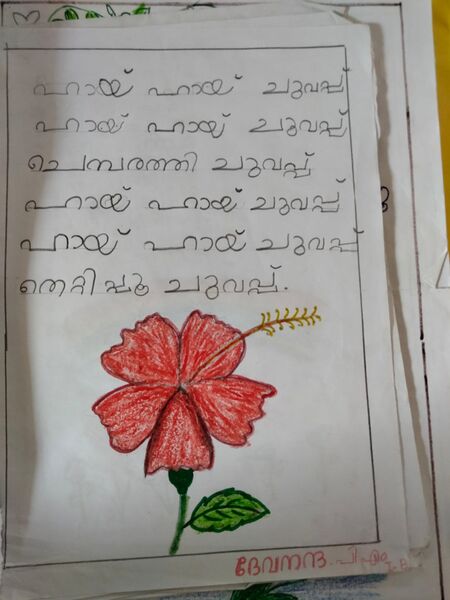 ഹായ് ഹായ് ചുവപ്പ്
ഹായ് ഹായ് ചുവപ്പ്
ചെമ്പരത്തി ചുവപ്പ്
ഹായ് ഹായ് ചുവപ്പ്
ഹായ് ഹായ് ചുവപ്പ്
തെറ്റിപ്പൂ ചുവപ്പ്.
ദേവനന്ദ. പി